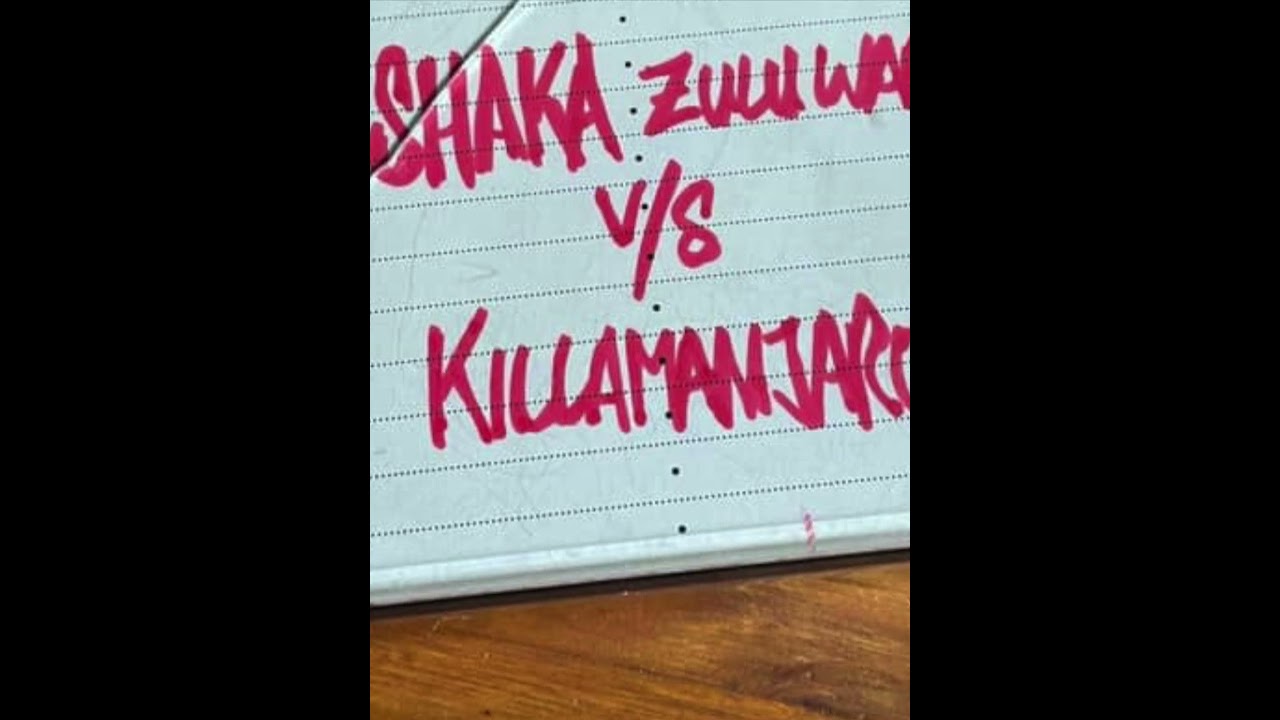 SHAKA ZULU WAR
V/S
KILLAMANJARO